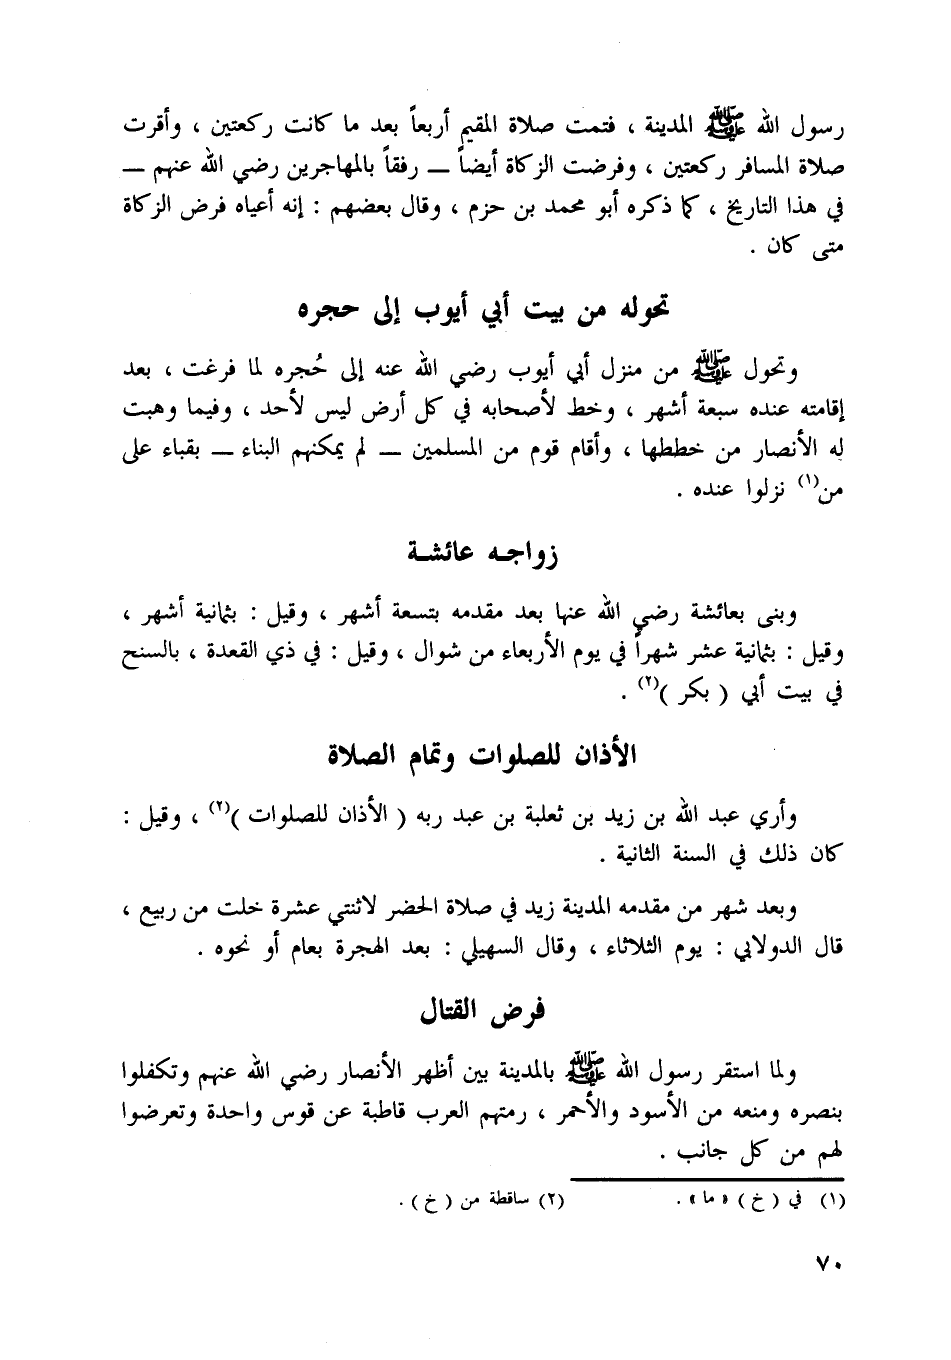 رسول الله ﷺ المدينة ، فتمت صلاة المقيم أربعاً بعد ما كانت ركعتين ، وأقرت
صلاة المسافر ركعتين ، وفرضت الزكاة أيضاً ــ رفقاً بالمهاجرين رضي الله عنهم ــ
في هذا التاريخ ، كما ذكره أبو محمد بن حزم ، وقال بعضهم : إنه أعياه فرض الزكاة
متى كان .
تحوله من بيت أبي أيوب إلى حجره
وتحول ﷺ من منزل أبي أيوب رضي الله عنه إلى حُجره لما فرغت ، بعد
إقامته عنده سبعة أشهر ، وخط لأصحابه في كل أرض ليس لأحد ، وفيما وهبت
له الأنصار من خططها ، وأقام قوم من المسلمين ــ لم يمكنهم البناء ــ بقباء على
من(١) نزلوا عنده .
زواجه عائشة
وبنى بعائشة رضي الله عنها بعد مقدمه بتسعة أشهر ، وقيل : بثمانية أشهر ،
وقيل : بثمانية عشر شهراً في يوم الأربعاء من شوال ، وقيل : في ذي القعدة ، بالسنح
في بيت أبي ( بكر )(٢) .
الأذان للصلوات وتمام الصلاة
وأري عبد الله بن زيد بن ثعلبة بن عبد ربه ( الأذان للصلوات )(٢) ، وقيل :
كان ذلك في السنة الثانية .
وبعد شهر من مقدمه المدينة زيد في صلاة الحضر لاثنتي عشرة خلت من ربيع ،
قال الدولابي : يوم الثلاثاء ، وقال السهيلي : بعد الهجرة بعام أو نحوه .
فرض القتال
ولما استقر رسول الله ﷺ بالمدينة بين أظهر الأنصار رضي الله عنهم وتكفلوا
بنصره ومنعه من الأسود والأحمر ، رمتهم العرب قاطبة عن قوس واحدة وتعرضوا
لهم من كل جانب .
(١) في ( خ ) « ما » . (٢) ساقطة من ( خ ) .
٧٠